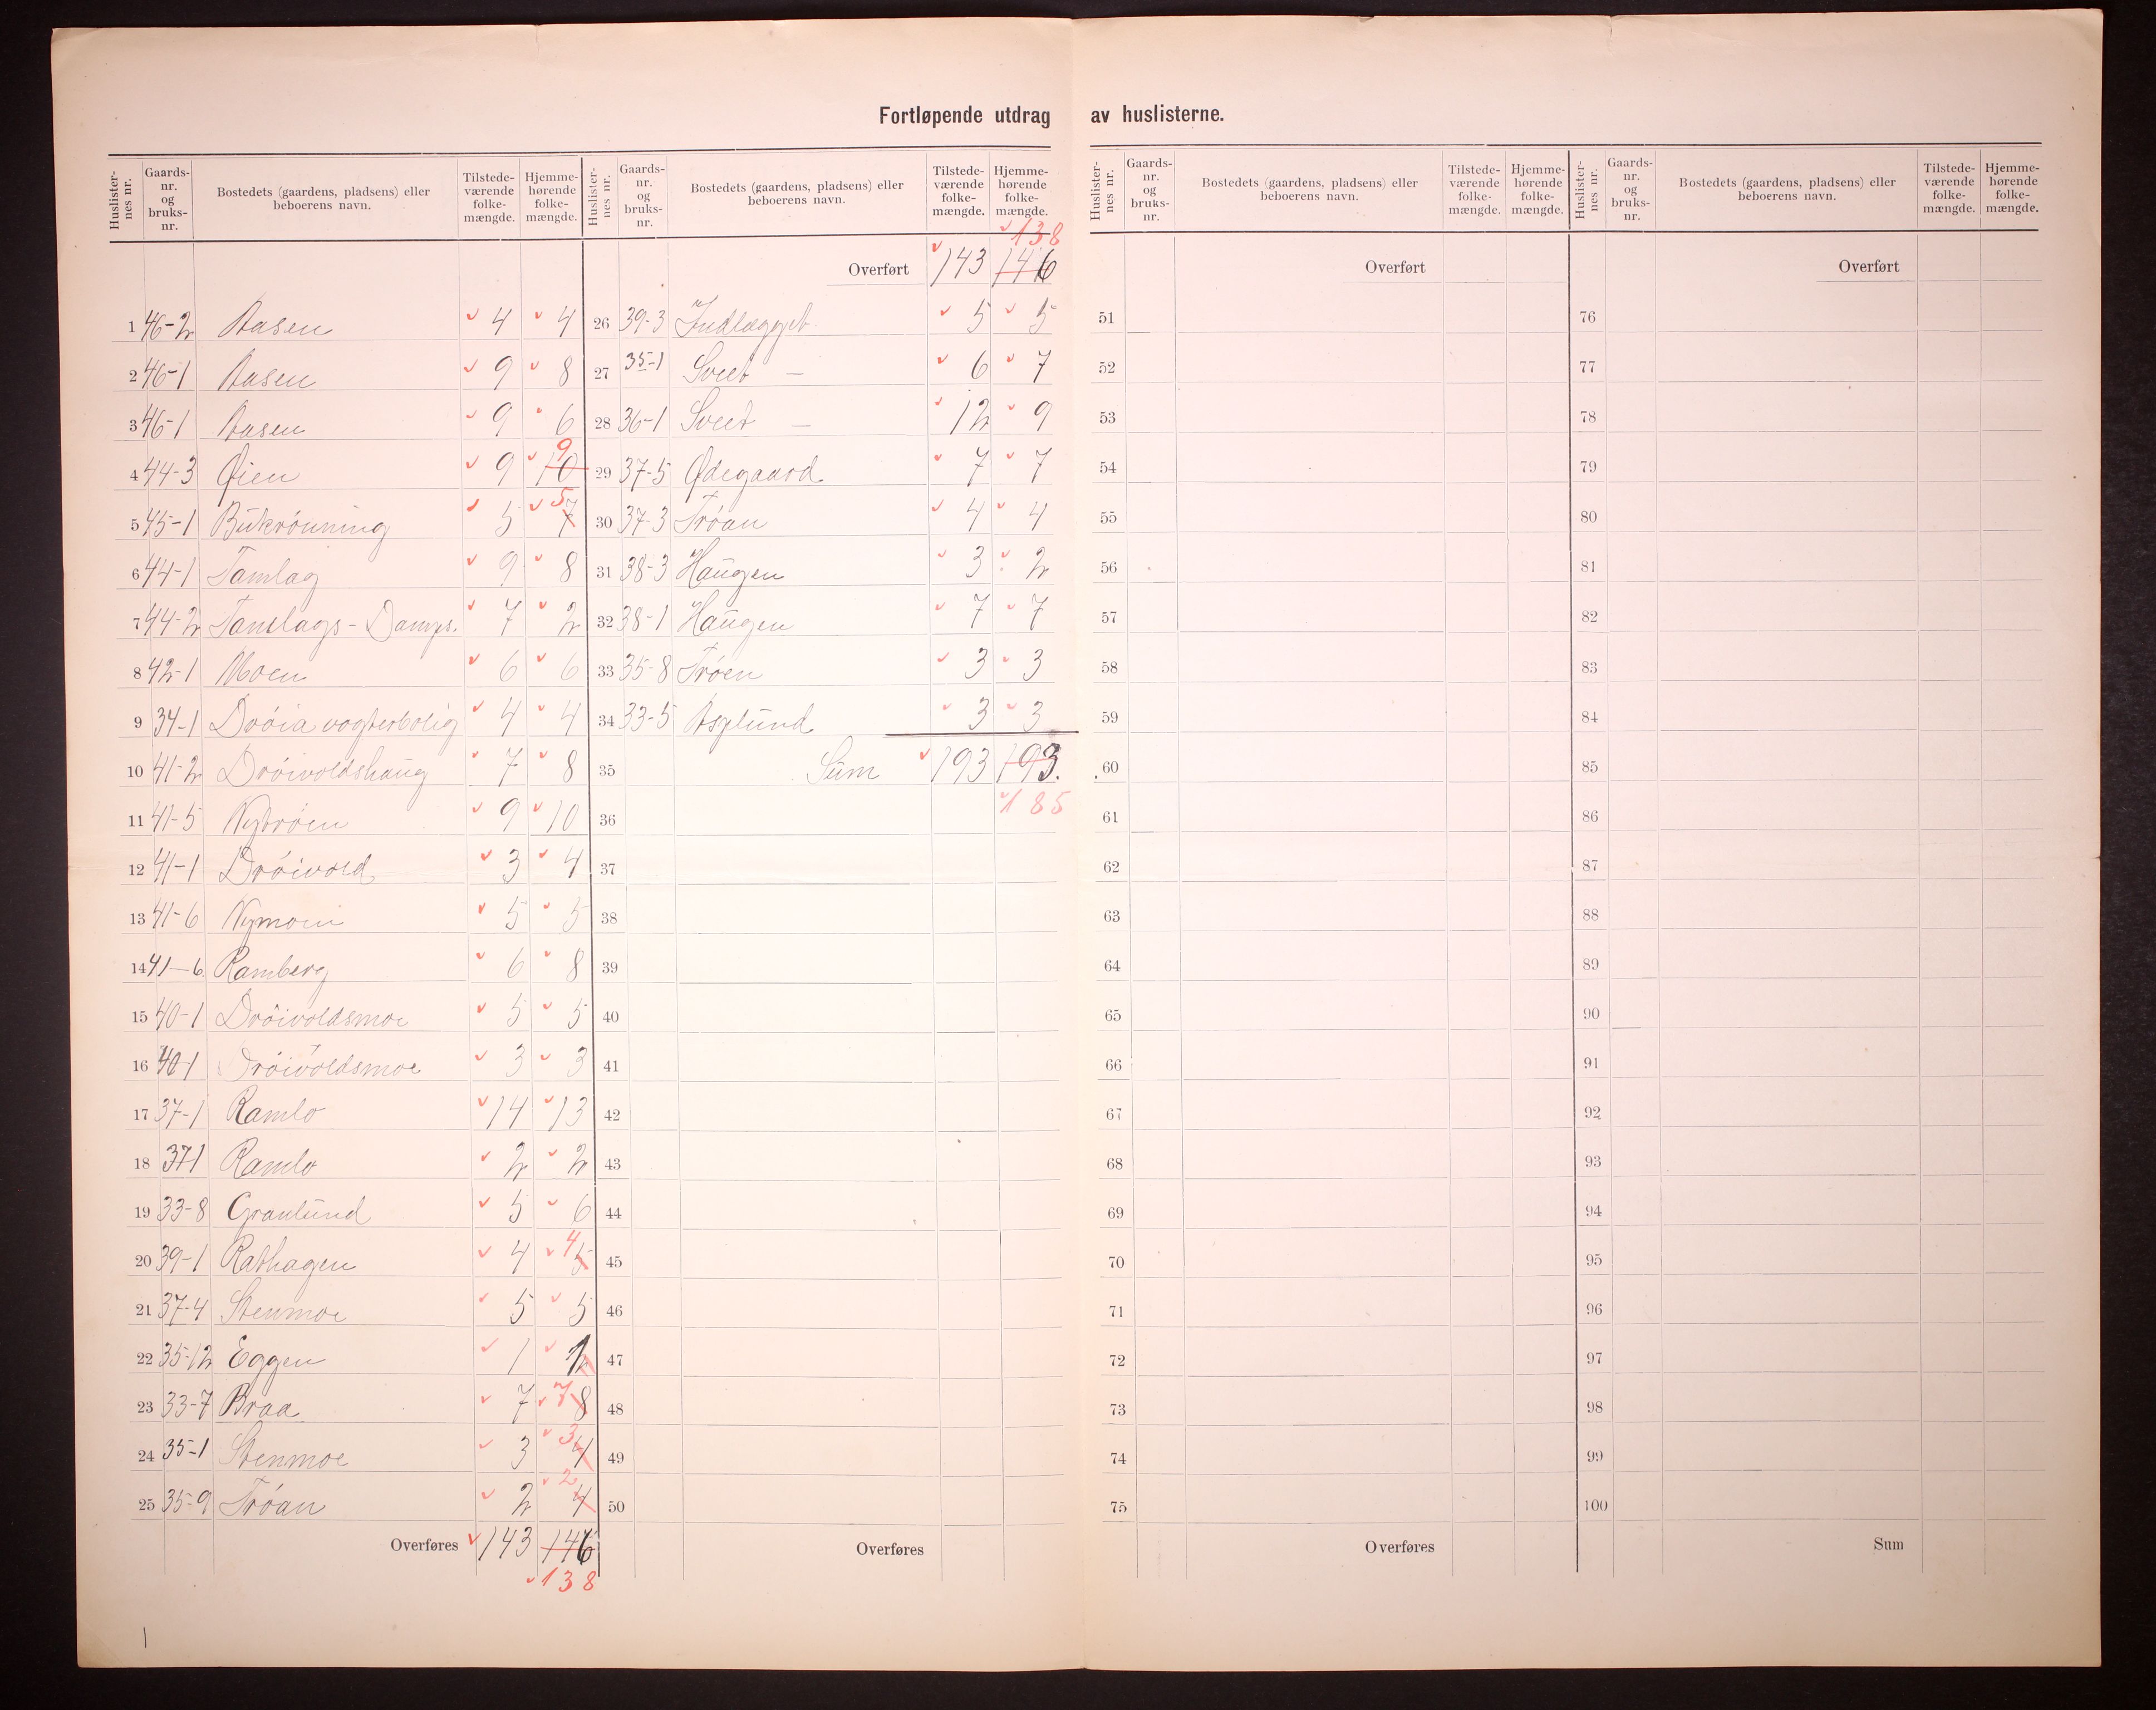 Fortløpende utdrag av huslisterne.
Huslister-nes nr. Gaards-nr. og bruks-nr. Bostedets (gaardens, pladsens) eller beboerens navn. Tilstede-værende folke-mængde. Hjemme-hørende folke-mængde.
1 46-2 Aasen 4 4
2 46-1 Aasen 9 8
3 46-1 Aasen 9 6
4 44-3 Øien 9 10 9
5 45-1 Bukrønning 5 7 5
6 44-1 Tamlag 9 8
7 44-2 Tamlags-Damps. 7 2
8 42-1 Moen 6 6
9 34-1 Drøia vogterbolig 4 4
10 41-2 Drøivoldshaug 7 8
11 41-5 Nytrøen 9 10
12 41-1 Drøivold 3 4
13 41-6 Nymoen 5 5
14 41-6 Ramberg 6 8
15 40-1 Drøivoldsmoe 5 5
16 40-1 Drøivoldsmoe 3 3
17 37-1 Ramlo 14 13
18 37-1 Ramlo 2 2
19 33-8 Granlund 5 6
20 39-1 Rathagen 4 5 4
21 37-4 Stenmoe 5 5
22 35-12 Eggen 1 1
23 33-7 Braa 7 8 7
24 35-1 Stenmoe 3 4 3
25 35-9 Trøan 2 4 2
Overføres 143 146
138
1
Huslister-nes nr. Gaards-nr. og bruks-nr. Bostedets (gaardens, pladsens) eller beboerens navn. Tilstede-værende folke-mængde. Hjemme-hørende folke-mængde.
138
Overført 143 146
26 39-3 Indlægget 5 5
27 35-1 Sveet - 6 7
28 36-1 Sveet - 12 9
29 37-5 Ødegaard 7 7
30 37-3 Trøan 4 4
31 38-3 Haugen 3 2
32 38-1 Haugen 7 7
33 35-8 Trøen 3 3
34 33-5 Asplund 3 3
35 Sum 193 193.
185
36
37
38
39
40
41
42
43
44
45
46
47
48
49
50
Overføres
Huslister-nes nr. Gaards-nr. og bruks-nr. Bostedets (gaardens, pladsens) eller beboerens navn. Tilstede-værende folke-mængde. Hjemme-hørende folke-mængde.
Overført
51
52
53
54
55
56
57
58
59
60
61
62
63
64
65
66
67
68
69
70
71
72
73
74
75
Overføres
Huslister-nes nr. Gaards-nr. og bruks-nr. Bostedets (gaardens, pladsens) eller beboerens navn. Tilstede-værende folke-mængde. Hjemme-hørende folke-mængde.
Overført
76
77
78
79
80
81
82
83
84
85
86
87
88
89
90
91
92
93
94
95
96
97
98
99
100
Sum